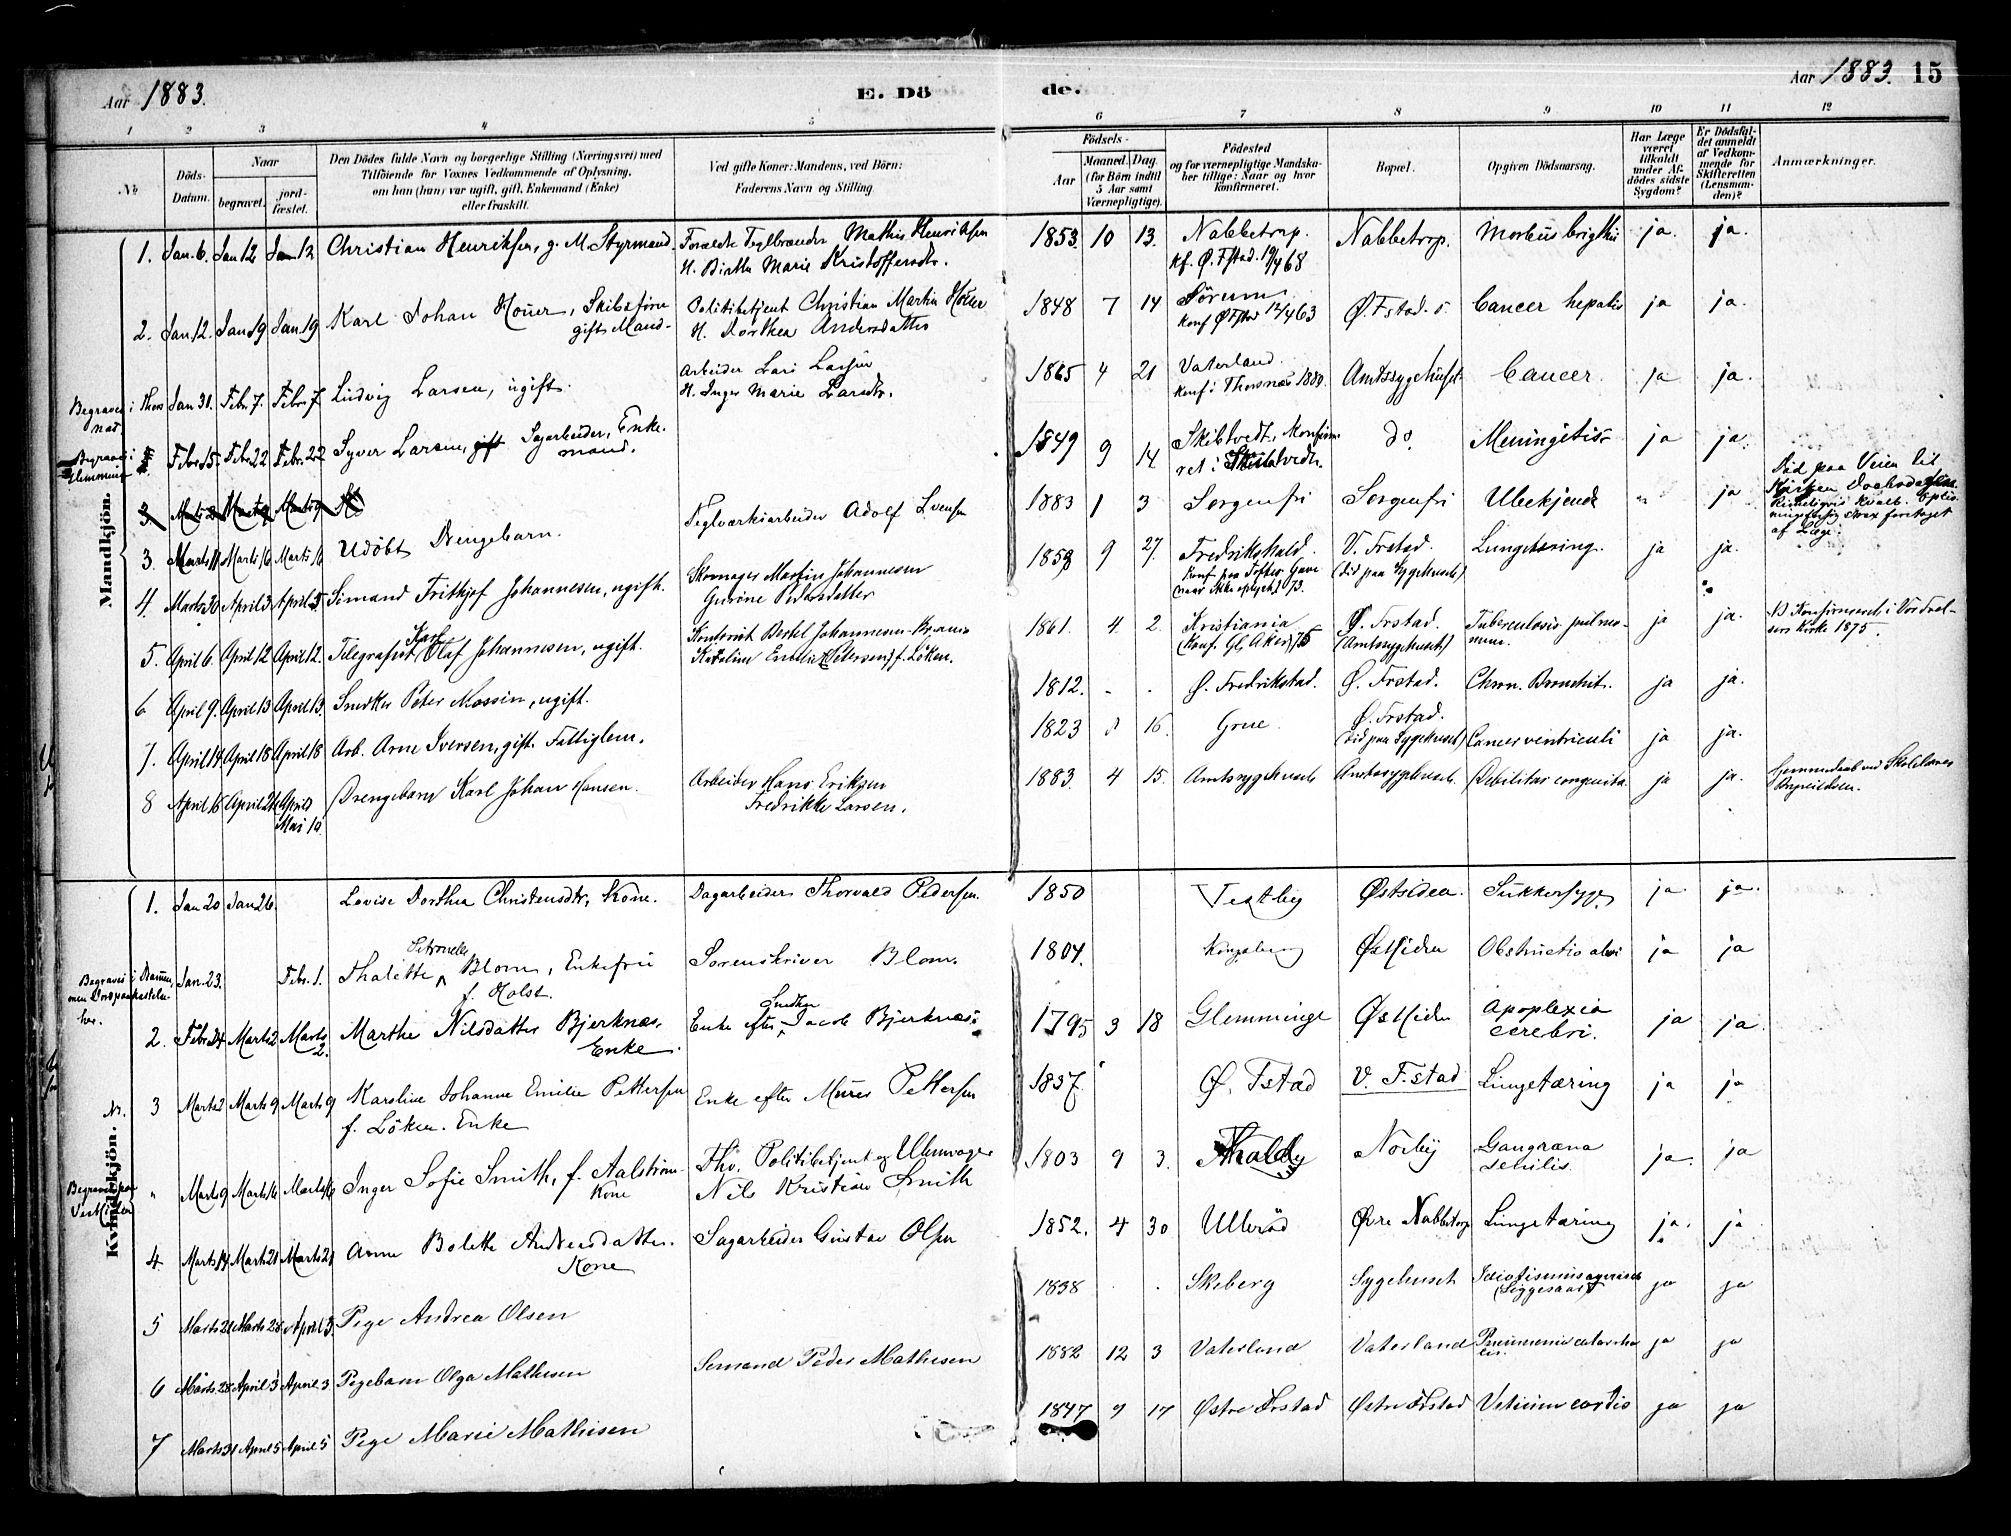 Aar 1883.
E. Dö
de.
Aar 1883. 15
1 2 3 4 5 6 7 8 9 10 11 12
No
Döds-Datum.
Naar
begravet.
jord-fæstet.
Den Dödes fulde Navn og borgerlige Stilling (Næringsvei) med
Tilföiende for Voxnes Vedkommende af Oplysning,
om han (hun) var ugift, gift, Enkemand (Enke)
eller fraskilt.
Ved gifte Koner: Mandens, ved Börn:
Faderens Navn og Stilling.
Födsels-
Aar
Maaned. Dag.
(for Börn indtil
5 Aar samt
Værnepligtige).
Födested
og for værnepligtige Mandska-
ber tillige: Naar og hvor
konfirmeret.
Bopæl.
Opgiven Dödsaarsag.
Har Læge
været
tilkaldt
under Af-
dödes sidste
Sygdom?
Er Dödsfal-
det anmeldt
af Vedkom-
mende for
Skifteretten
(Lensman-
den)?
Anmærkninger.
Mandkjön.
1. Jan. 6. Jan 12 Jan 12 Christian Henriksen, g. M. Styrmand. Forældre Teglbrænder Mathis Henriksen
H. Birthe Marie Kristoffersdtr. 1853. 10 13. Nabbetorp. Nabbetorp. Morbus brigthii ja. ja.
Kf. Ø. Fstad. 68
2. Jan. 12. Jan 19 Jan. 19 Karl Johan Höuer, Skibstöm
gift Mand- Politibetjent Christian Martin Höuer
H. Dorthea Andersdatter 1848 7 14 Sörum Ø. Fstad. Cancer hepatis ja ja.
Konf Ø Fstad 63
Begraves i Thorsnæs Jan 31. Febr. 7. Febr. 7 Ludvig Larsen, ugift. Arbeider Lars Larsen
H. Inger Marie Larsdtr. 1865 4 21 Vaterland. Amtssygehuset. Cancer. ja ja.
Konf i Thorsnæs 1880.
Begraves i Glemminge Febr. 15. Febr 22 Febr. 22 Syver Larsen, gift Sagarbeider, Enke-
mand. 1849 9 14 Skibtvedt, Konfirme-
ret i Skibtvedt. do. Meningitis ja ja.
3. Marts 9 Marts 9
3. Marts 11 Marts 16 Marts 16 Udöbt Drengebarn. Teglværksarbeider Adolf Svensen 1883 1 3 Sorgenfri Sorgenfri Ubekjendt " ja Död paa Veien til
Kirken
af Læge.
4. Marts 30 April 3 April 3 Sömand Frithjof Johannesen, ugift. Skomager Martin Johannesen
Gurine Pedersdatter 1853 9 27. Fredrikshald. V. Frstad. Lungetæring. ja ja.
Konf (död paa Sygehuset)
naar ikke 73.
5. April 6. April 12 April 12. Telegrafist Karl Olaf Johannesen, ugift. Kontorist Bertel Johannesen
Karoline Emilie (Petersen) f. Löken. 1861. 4. 2. Kristiania Ø. Frstad. Tuberculosis pulmo-
num. ja ja. NB Konfirmeret i Vor Frel-
sers Kirke 1875.
(Konf. Gl. Aker) 75 (Amtssygehuset)
6 April 9. April 13 April 13. Snedker Peter Mossin, ugift. 1812. - . Ø. Fredrikstad. Ø. Frstad. Chron. Bronchit. ja ja.
7. April 14 April 18 April 18 Arb. Arne Iversen, gift. Fattiglem. 1823 8 16. Grue. Ø. Frstad.
(död paa Sygehuset) Cancer ventriculi ja ja.
8 April 15 April 21 April
Mai 10 Drengebarn Karl Johan Hansen. Arbeider Hans Eriksen
Fredrikke Larsen. 1883. 4 15. Amtssygehuset. Amtssygehuset. Debilitas congenita. ja ja. Hjemmedaab ved
Kvindekjön.
1. Jan 20 Jan 26. Lovise Dorthea Christensdtr, Kone. Dagarbeider Thorvald Pedersen. 1850 Vestby Østsiden. Sukkersyge ja ja.
Jan. 23. Febr. 1. Thalette Petronelle Blom, Enkefrue
f. Holst. Sorenskriver Blom. 1804. Kongsberg Østsiden Obstructio alvi ja ja
2. Febr 24 Marts 2 Marts 2. Marthe Nilsdatter Bjerknæs.
Enke. Enke efter Snedker Jacob Bjerknæs 1795 3 18 Glemminge Østsiden Apoplexia
cerebri. ja ja.
Nr. 3 Marts 2 Marts 9 Marts 9 Karoline Johanne Emilie Pettersen
f. Löken. Enke Enke efter Murer Pettersen 1837. Ø. Fstad V. Fstad Lungetæring ja ja
Begraves paa Vestsiden " Marts 9 Marts 16 Marts 16 Inger Sofie Smith, f. Aalström
Kone Fhv. Politibetjent og Ulmvager
Nils Kristian Smith 1803 9 3. Norby Gangræna
senilis. ja. ja
4. Marts 14 Marts 21 Marts 21 Anne Bolette Andersdatter.
Kone Sagarbeider Gustav Olsen 1852. 4 30 Ulleröd Øvre Nabbetorp Lungetæring ja. ja
5 Marts 21 Marts 28 April 3. Pige Andrea Olsen 1838 . . Skeberg Sygehuset Idiotismus
(Liggesaar) ja ja
6 Marts 28 April 3 April 3 Pigebarn Olga Mathisen Sömand Peder Mathisen 1882 12 3 Vaterland Vaterland Pneumonia catarrha-
lis. ja ja
7 Marts 31 April 5 April 5 Pige Marie Mathisen 1847 9 17 Østre Frstad Østre Frstad Vitium cordis ja ja